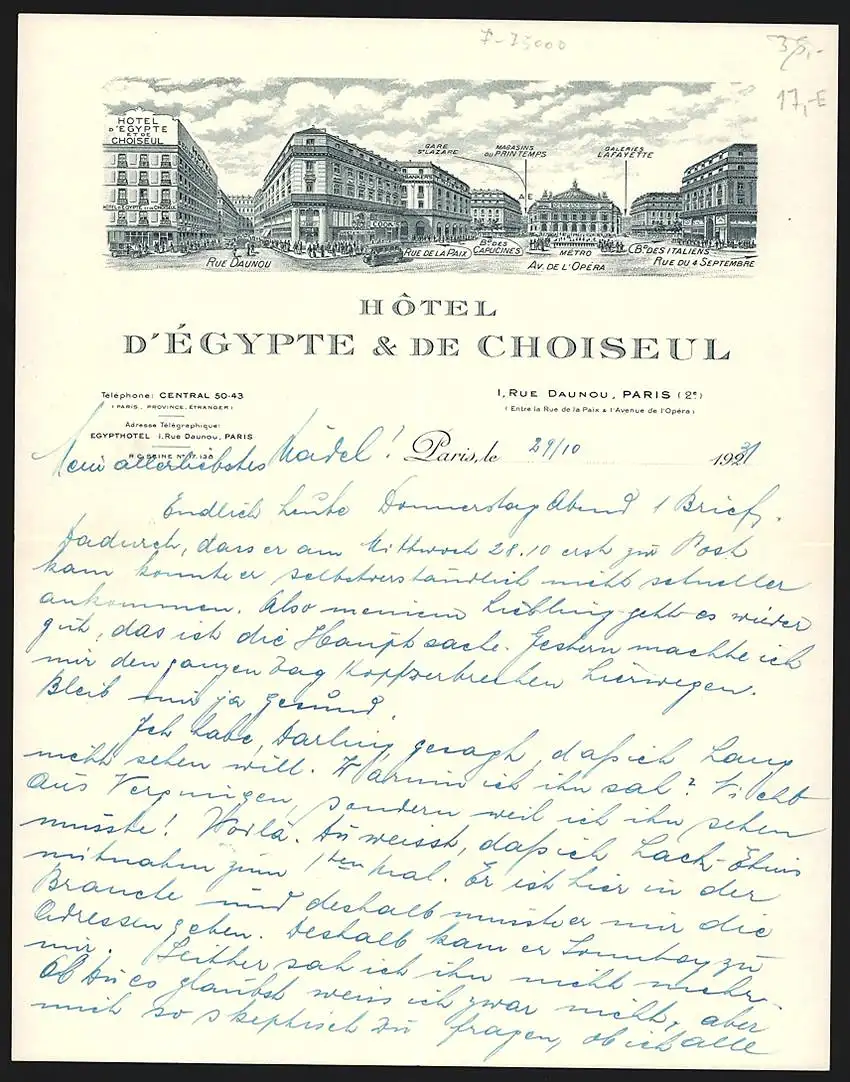 35,-
17,-E
HOTEL
D'EGYPTE
ET DE
CHOISEUL
GARE
ST LAZARE
MAGASINS
DU PRINTEMPS
GALERIES
LAFAYETTE
BANKERS
COOK
RUE DAUNOU
RUE DE LA PAIX
BD DES
CAPUCINES
METRO
AV. DE L'OPÉRA
BD DES ITALIENS
RUE DU 4 SEPTEMBRE
HÔTEL
D'ÉGYPTE & DE CHOISEUL
Téléphone: CENTRAL 50-43
(PARIS, PROVINCE, ÉTRANGER)
Adresse Télégraphique:
EGYPTHOTEL 1, Rue Daunou, PARIS
R.C. SEINE Nº 17.138
1, RUE DAUNOU, PARIS (2e)
(Entre la Rue de la Paix & l'Avenue de l'Opéra)
Paris, le 29/10 1931
Mein allerliebstes Mädel!
Endlich heute Donnerstag Abend 1 Brief.
Dadurch, dass er am Mittwoch 28.10 erst zur Post
kam konnte er selbstverständlich nicht schneller
ankommen. Also meinem Liebling geht es wieder
gut, das ist die Hauptsache. Gestern machte ich
mir den ganzen Tag Kopfzerbrechen hierwegen.
Bleib mir ja gesund.
Ich habe, Darling gesagt, daß ich Lang
nicht sehen will. Warum ich ihn sah? Nicht
aus Vergnügen, sondern weil ich ihn sehen
musste! Voilà. Du weisst, daß ich Lack-Etuis
mitnahm zum 1ten Mal. Er ist hier in der
Branche und deshalb musste er mir die
Adressen geben. Deshalb kam er Sonntag zu
mir. Seither sah ich ihn nicht mehr.
Ob Du es glaubst weiss ich zwar nicht, aber
mich so skeptisch zu fragen, ob ich alle